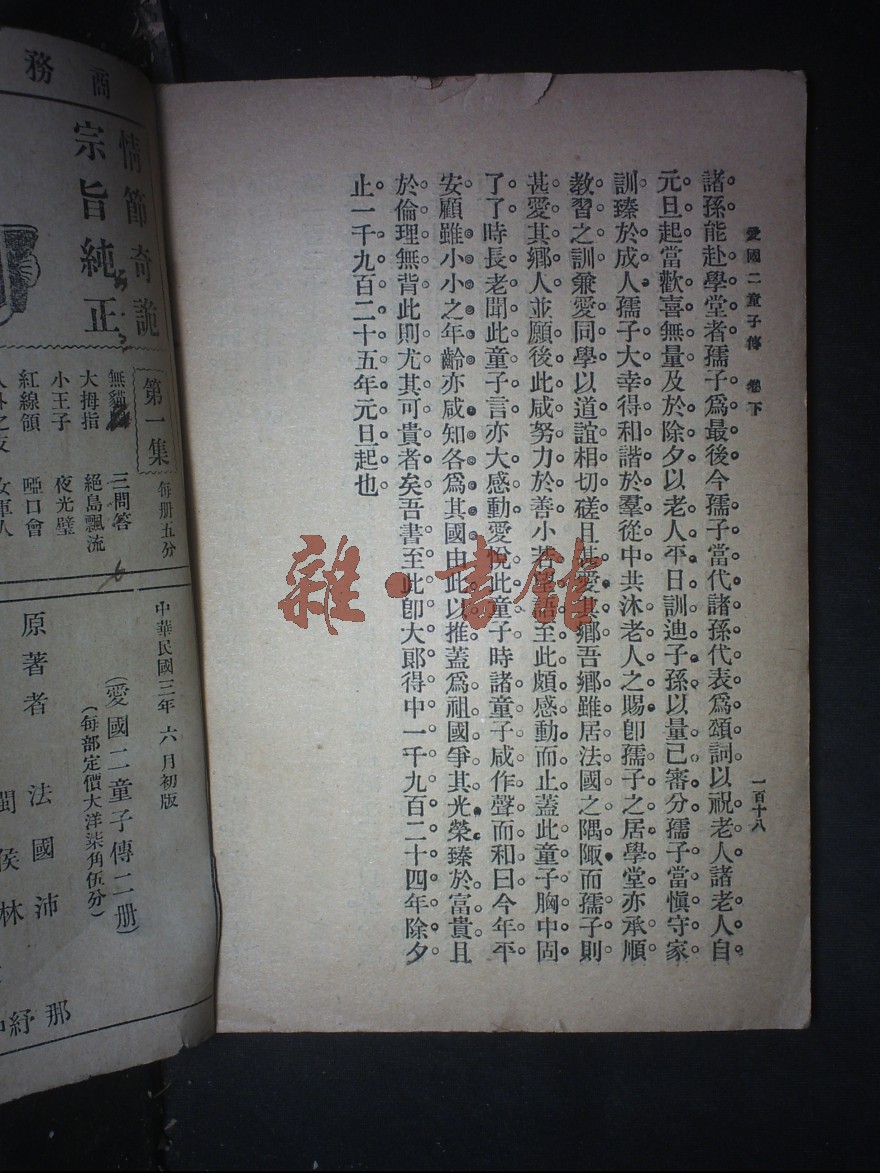 愛國二童子傳 卷下
一百十八
諸孫能赴學堂者孺子爲最後今孺子當代諸孫代表爲頌詞以祝老人諸老人自
元旦起當歡喜無量及於除夕以老人平日訓迪子孫以量已審分孺子當愼守家
訓臻於成人孺子大幸得和諧於羣從中共沐老人之賜卽孺子之居學堂亦承順
教習之訓兼愛同學以道誼相切磋且甚愛其鄉吾鄉雖居法國之隅陬而孺子則
甚愛其鄉人並願後此咸努力於善小若望語至此頗感動而止蓋此童子胸中固
了了時長老聞此童子言亦大感動愛悅此童子時諸童子咸作聲而和曰今年平
安顧雖小小之年齡亦咸知各爲其國由此以推蓋爲祖國爭其光榮臻於富貴且
於倫理無背此則尤其可貴者矣吾書至此卽大郞得中一千九百二十四年除夕
止一千九百二十五年元旦起也
雜·書館
商務
情節奇詭
宗旨純正
第一集
每册五分
無貓 三問答
大拇指 絕島飄流
小王子 夜光璧
紅線領 啞口會
中華民國三年六月初版
(愛國二童子傳二册)
(每部定價大洋柒角伍分)
原著者 法國沛那
閩侯林紓